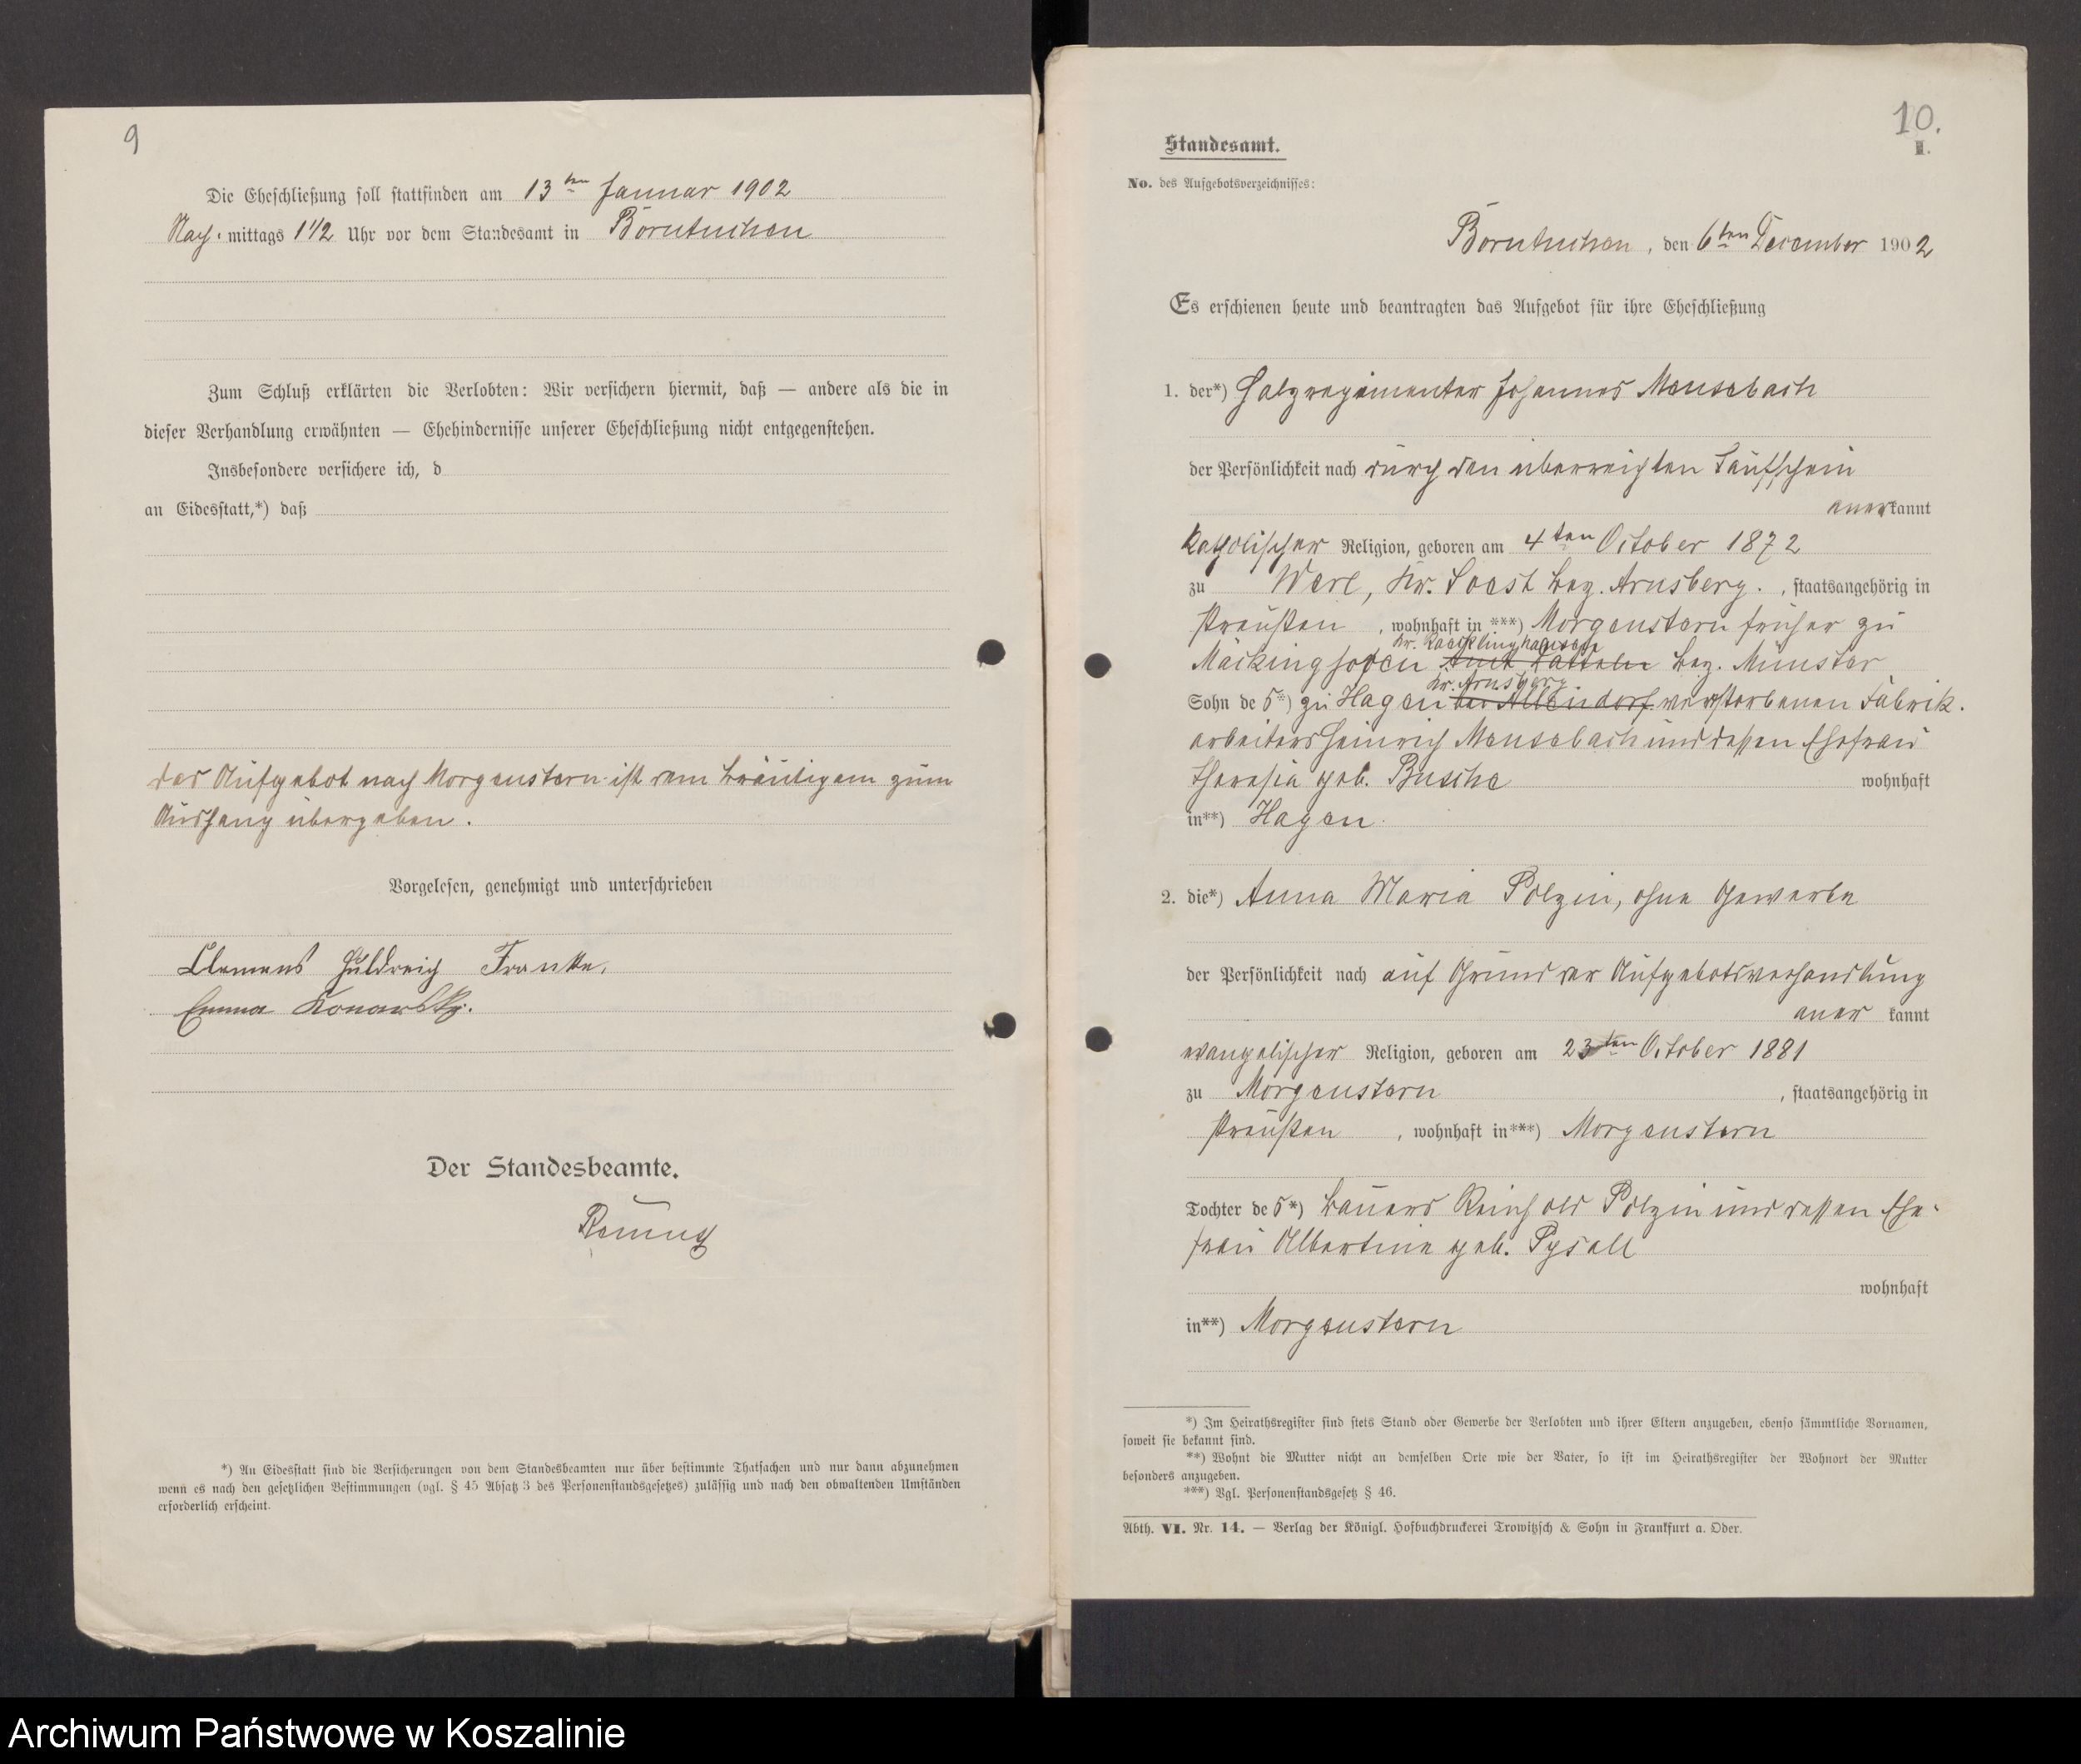 9
Die Eheschließung soll stattfinden am 13ten Januar 1902
Nach-mittags 1 1/2 Uhr vor dem Standesamt in Borntuchen
Zum Schluß erklärten die Verlobten: Wir versichern hiermit, daß — andere als die in
dieser Verhandlung erwähnten — Ehehindernisse unserer Eheschließung nicht entgegenstehen.
Insbesondere versichere ich, d
an Eidesstatt,*) daß
Das Aufgebot nach Morgenstern ist dem Bräutigam zum
Aushang übergeben.
Vorgelesen, genehmigt und unterschrieben
Clemens Huldreich Franke.
Emma Konarsky.
Der Standesbeamte.
*) An Eidesstatt sind die Versicherungen von dem Standesbeamten nur über bestimmte Thatsachen und nur dann abzunehmen
wenn es nach den gesetzlichen Bestimmungen (vgl. § 45 Absatz 3 des Personenstandsgesetzes) zulässig und nach den obwaltenden Umständen
erforderlich erscheint.
10.
Standesamt.
I.
No. des Aufgebotsverzeichnisses:
Borntuchen, den 6ten December 1902
Es erschienen heute und beantragten das Aufgebot für ihre Eheschließung
1. der*) Holzregimenter Johannes Mensebach
der Persönlichkeit nach durch den überreichten Taufschein
anerkannt
katholischer Religion, geboren am 4ten October 1872
zu Werl, Kr. Soest Bez. Arnsberg., staatsangehörig in
Preußen, wohnhaft in ***) Morgenstern früher zu
Kr. Recklinghausen
Meckinghoven Amt Datteln Bez. Münster
Kr. Arnsberg
Sohn des*) zu Hagen bei Allendorf verstorbenen Fabrik-
arbeiters Heinrich Mensebach und dessen Ehefrau
Theresia geb. Busche wohnhaft
in**) Hagen.
2. die*) Anna Maria Polzin, ohne Gewerbe
der Persönlichkeit nach auf Grund der Aufgebotsverhandlung
anerkannt
evangelischer Religion, geboren am 23ten October 1881
zu Morgenstern, staatsangehörig in
Preußen, wohnhaft in***) Morgenstern
Tochter des*) Bauers Reinhold Polzin und dessen Ehe-
frau Albertine geb. Pysall
wohnhaft
in**) Morgenstern
*) Im Heirathsregister sind stets Stand oder Gewerbe der Verlobten und ihrer Eltern anzugeben, ebenso sämmtliche Vornamen,
soweit sie bekannt sind.
**) Wohnt die Mutter nicht an demselben Orte wie der Vater, so ist im Heirathsregister der Wohnort der Mutter
besonders anzugeben.
***) Vgl. Personenstandsgesetz § 46.
Abth. VI. Nr. 14. — Verlag der Königl. Hofbuchdruckerei Trowitzsch & Sohn in Frankfurt a. Oder.
Archiwum Państwowe w Koszalinie